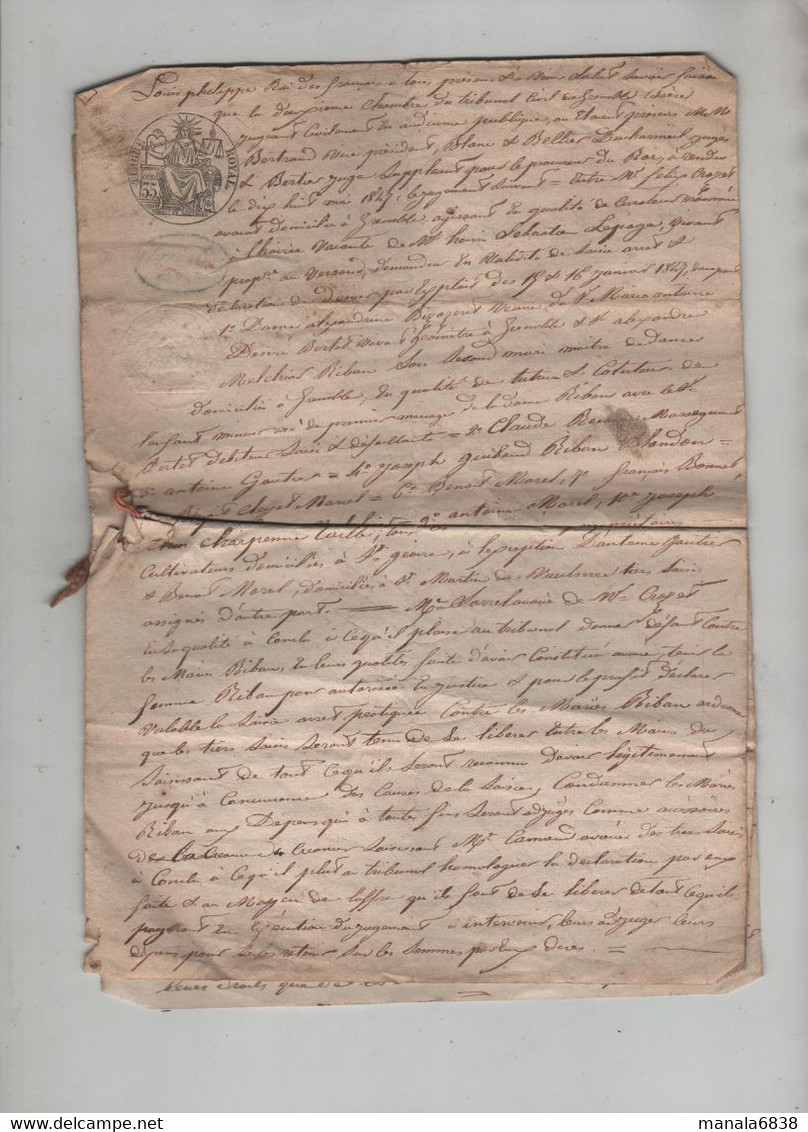 Louis philippe Roi des français à tous présens & à venir Salut Savoir faisons
que la deuxieme Chambre du tribunal Civil de Grenoble isère
jugeant Civilement en audience publique, ou étaient présens M.M
TIMBRE ROYAL
35
Bertrand vice président, Blanc & Bellier Duchasmeil juges
& Bertier juge Suppleant pour le procureur du Roi, à rendu
le dix huit mai 1847, le jugement Suivant = Entre Mr felix Crozet
avoué domicilié à Grenoble agissant en qualité de Curateur nommé
à l'hoirie Vacante de Mr Sebastien Lepage, vivant
propre au Versoud, demandeur en Validité de Saisie arret &
de par Exploits des 15 & 16 janvier 1847,
1° Dame alexandrine veuve de Sr Marie antoine
Desiré Bertet vivant géomètre à Grenoble & Sr alexandre
Melchior Riban Son Second mari maitre de Danse
domiciliés à Grenoble, en qualité de tutrice & Cotuteur de
l'enfant mineur né de premier mariage de la dame Riban avec le Sr
Bertet débiteur Saisi & défaillante = 2° Claude
antoine Gautier = 4° joseph Guibaud Riban Blandon =
Morel = 6° Benoit Morel, 7° françois Bonnet,
Charpenne antoine Morel, 10° joseph
propriétaires
Cultivateurs domiciliés à St geoire, à l'exception D'antoine Gautier
& Benoit Morel, domiciliés à St Martin de tiers Saisis
assignés d'autre part. — Me avoué de Mr Crozet
en Sa qualité à Conclu à Ce qu'il plaise au tribunal donner défaut Contre
les Mariés Riban, en leurs qualités faute d'avoir Constitué avoué, tenir la
femme Riban pour autorisée En justice & pour le profit déclarer
Valable la Saisie arret pratiquée Contre les Mariés Riban ordonner
que les tiers Saisis Seront tenus de Se libérer Entre les Mains du
Saisissant de tout Ce qu'ils Seront reconnus Devoir légitimement
jusqu'à Concurrence Des Causes de la Saisie, Condamner les Mariés
Riban aux Depens qui à toutes fins Seront adjugés Comme accessoires
de la Créance Saisissant Me Camand avoué des tiers Saisis
à Conclu à Ce qu'il plut au tribunal homologuer la déclaration par eux
faite & au Moyen de l'offre qu'ils font de Se libérer de tout Ce qu'ils
payeront En Exécution du jugement à intervenir, leurs adjuger leurs
dépens pour Saisis retenir Sur les Sommes par Eux dues. =
leurs droits que de
manala6838